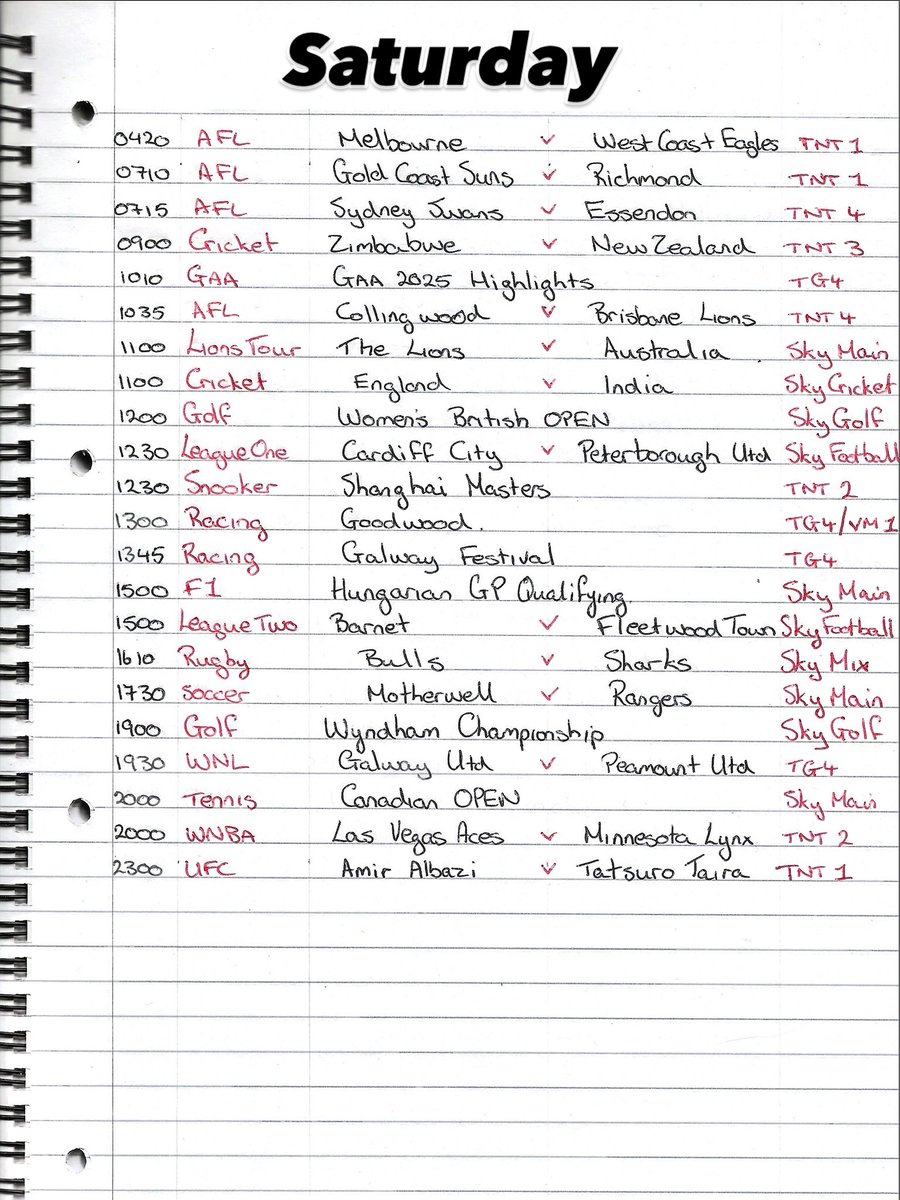 Saturday
0420 AFL Melbourne v West Coast Eagles TNT 1
0710 AFL Gold Coast Suns v Richmond TNT 1
0715 AFL Sydney Swans v Essendon TNT 4
0900 Cricket Zimbabwe v New Zealand TNT 3
1010 GAA GAA 2025 Highlights TG4
1035 AFL Collingwood v Brisbane Lions TNT 4
1100 Lions Tour The Lions v Australia Sky Main
1100 Cricket England v India Sky Cricket
1200 Golf Women's British OPEN Sky Golf
1230 League One Cardiff City v Peterborough Utd Sky Football
1230 Snooker Shanghai Masters TNT 2
1300 Racing Goodwood. TG4/VM1
1345 Racing Galway Festival TG4
1500 F1 Hungarian GP Qualifying. Sky Main
1500 League Two Barnet v Fleetwood Town Sky Football
1610 Rugby Bulls v Sharks Sky Mix
1730 Soccer Motherwell v Rangers Sky Main
1900 Golf Wyndham Championship Sky Golf
1930 WNL Galway Utd v Peamount Utd TG4
2000 Tennis Canadian OPEN Sky Main
2000 WNBA Las Vegas Aces v Minnesota Lynx TNT 2
2300 UFC Amir Albazi v Tatsuro Taira TNT 1